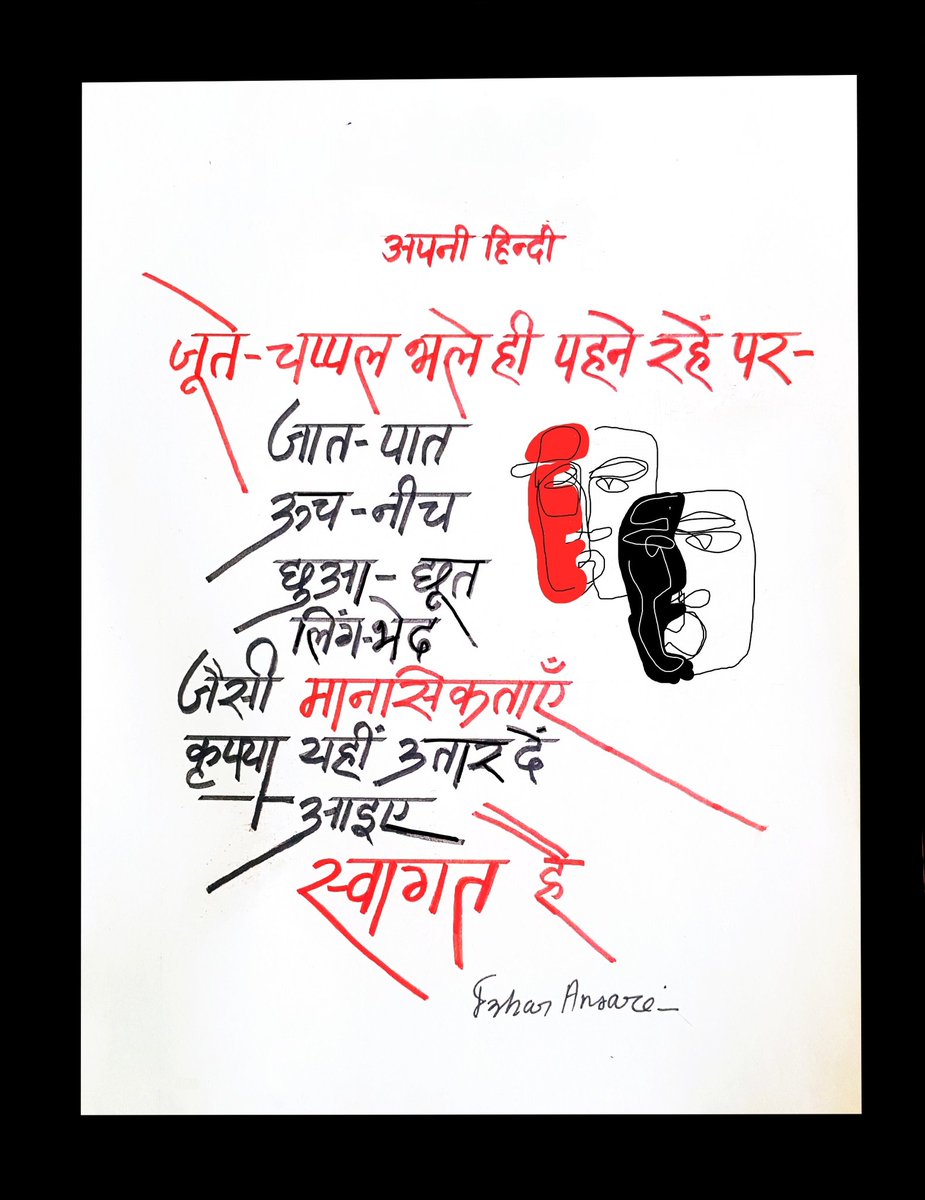 अपनी हिन्दी
जूते-चप्पल भले ही पहने रहें पर-
जात-पात
ऊच-नीच
छुआ-छूत
लिंग-भेद
जैसी मानसिकताएँ
कृपया यहीं उतार दें
आइए
स्वागत है
Izhar Ansari